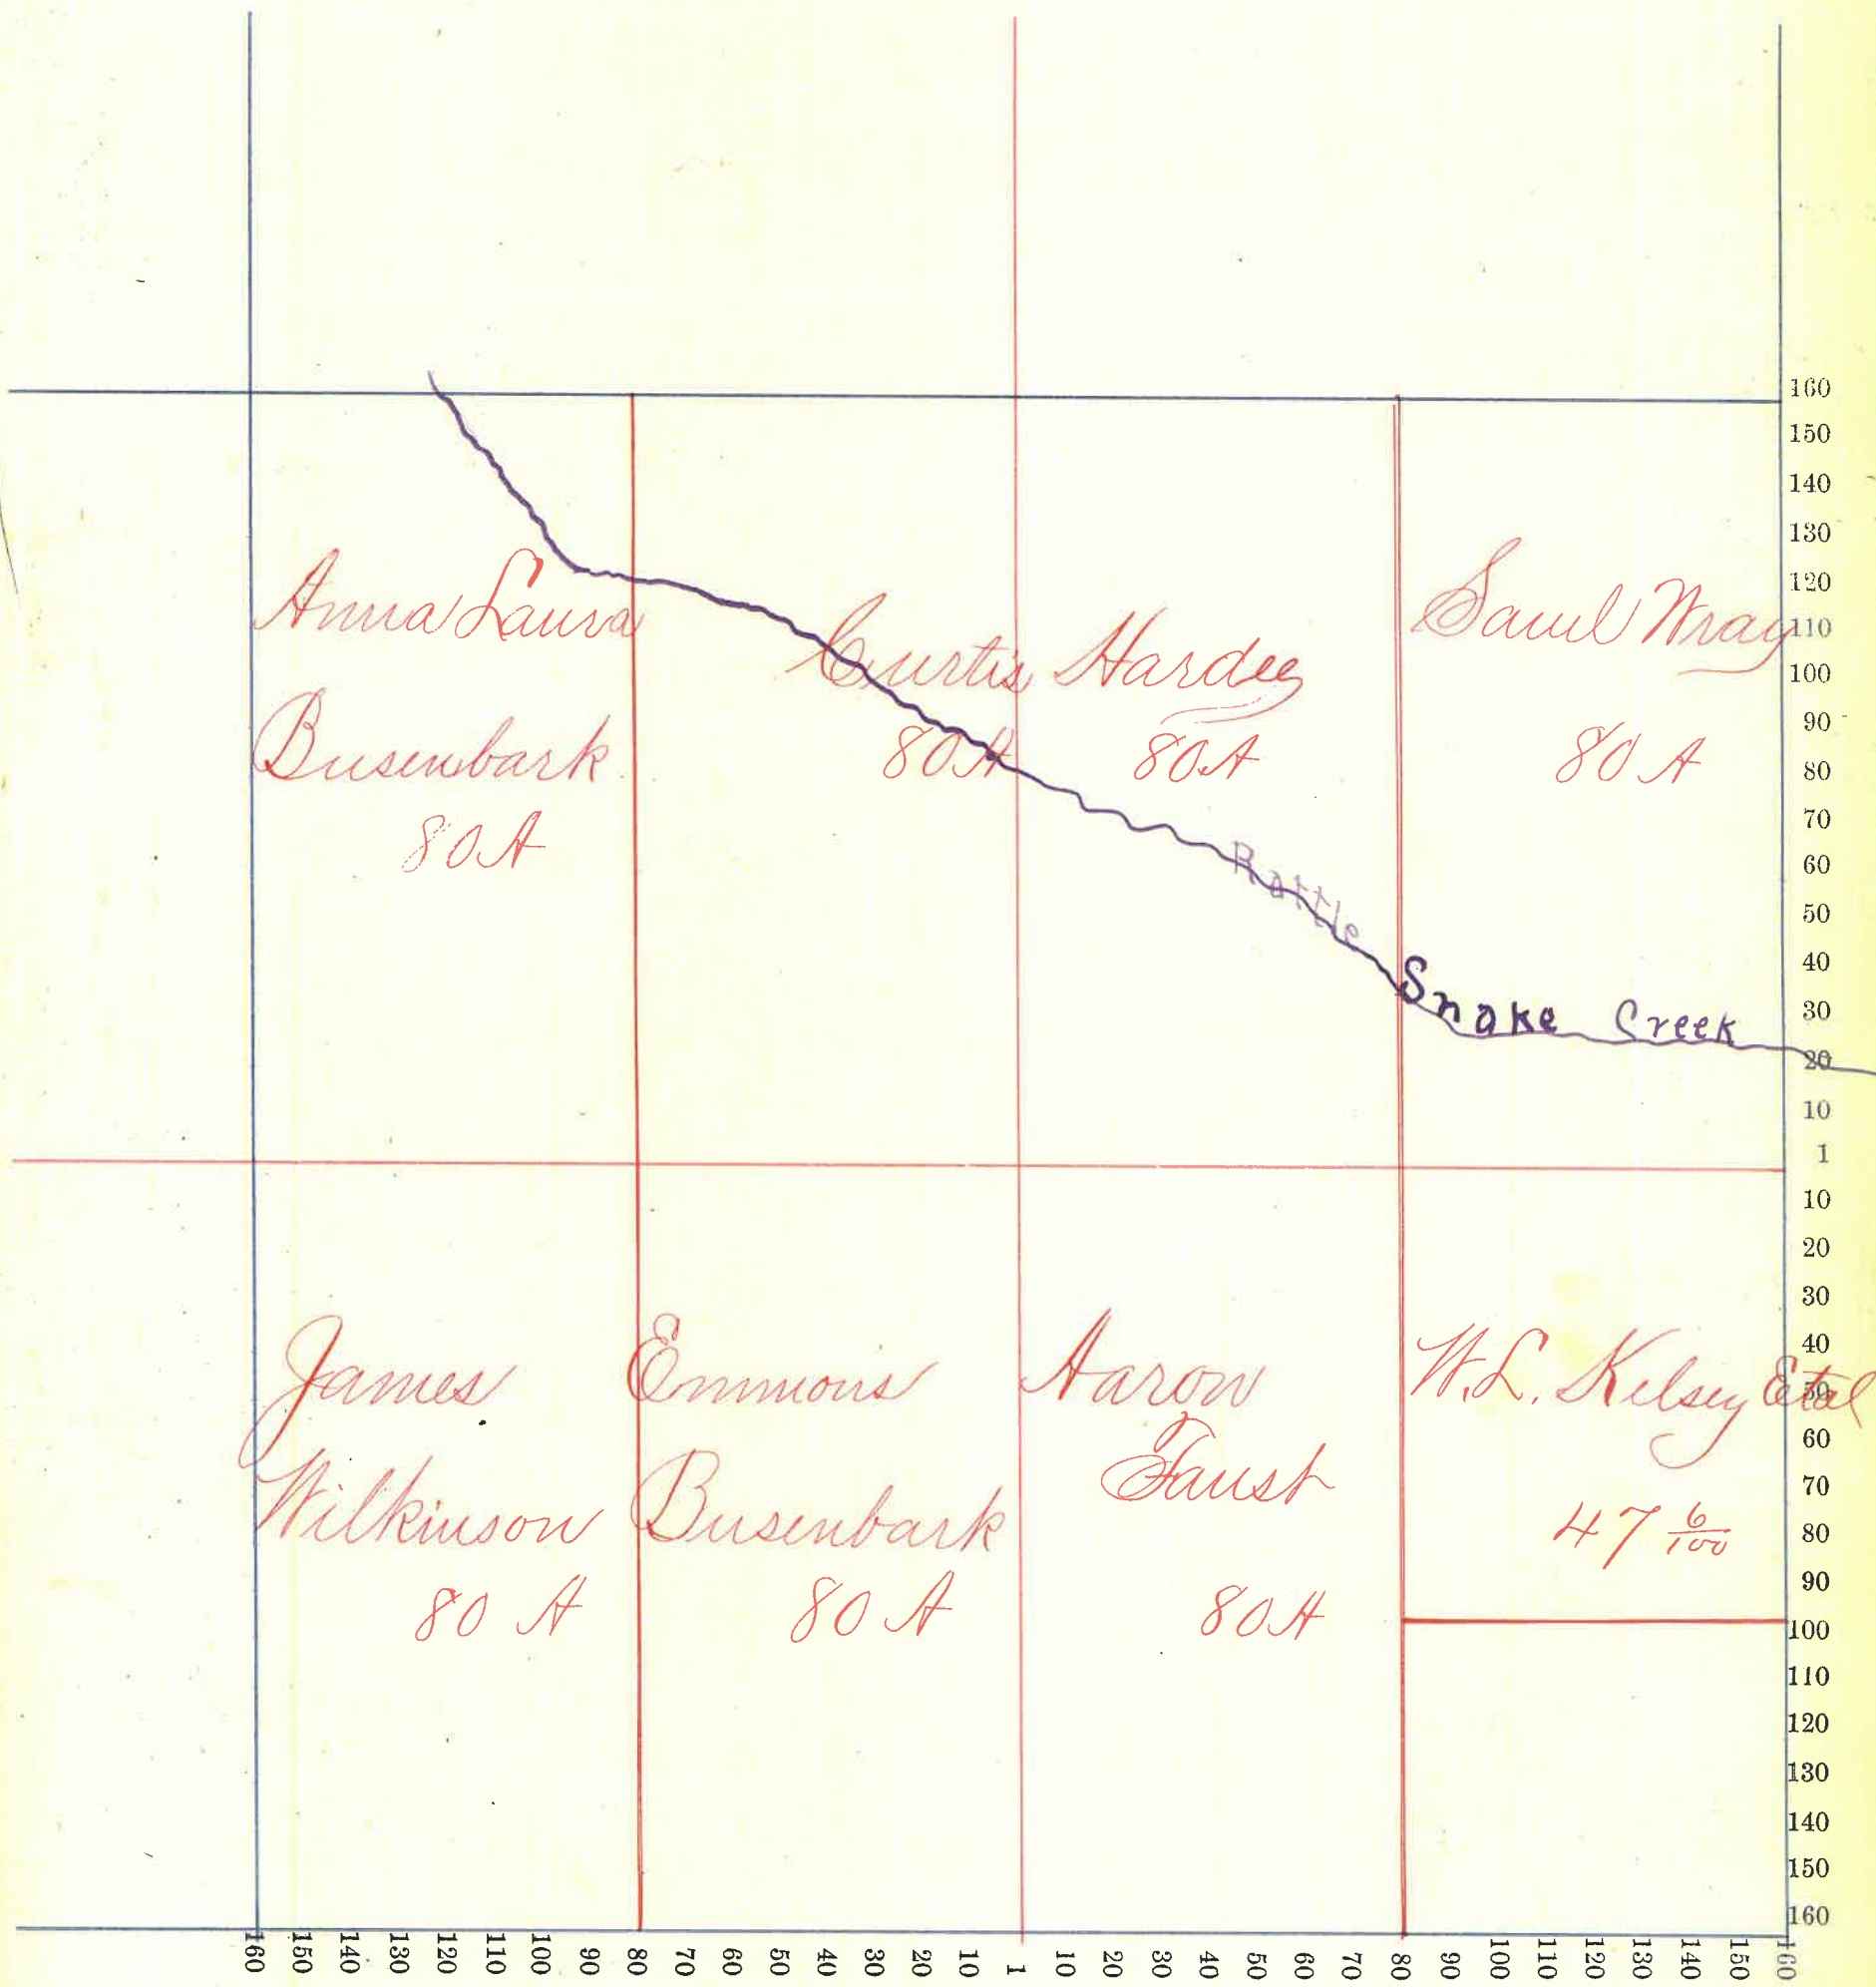 Anna Laura
Busenbark
80 A
Curtis Hardee
80 A 80 A
Saml Wray
80 A
Rattle Snake Creek
James
Wilkinson
80 A
Emmons
Busenbark
80 A
Aaron
Faust
80 A
W. L. Kelsey Etal
47 6/100
160
150
140
130
120
110
100
90
80
70
60
50
40
30
20
10
1
10
20
30
40
50
60
70
80
90
100
110
120
130
140
150
160
160 150 140 130 120 110 100 90 80 70 60 50 40 30 20 10 1 10 20 30 40 50 60 70 80 90 100 110 120 130 140 150 160